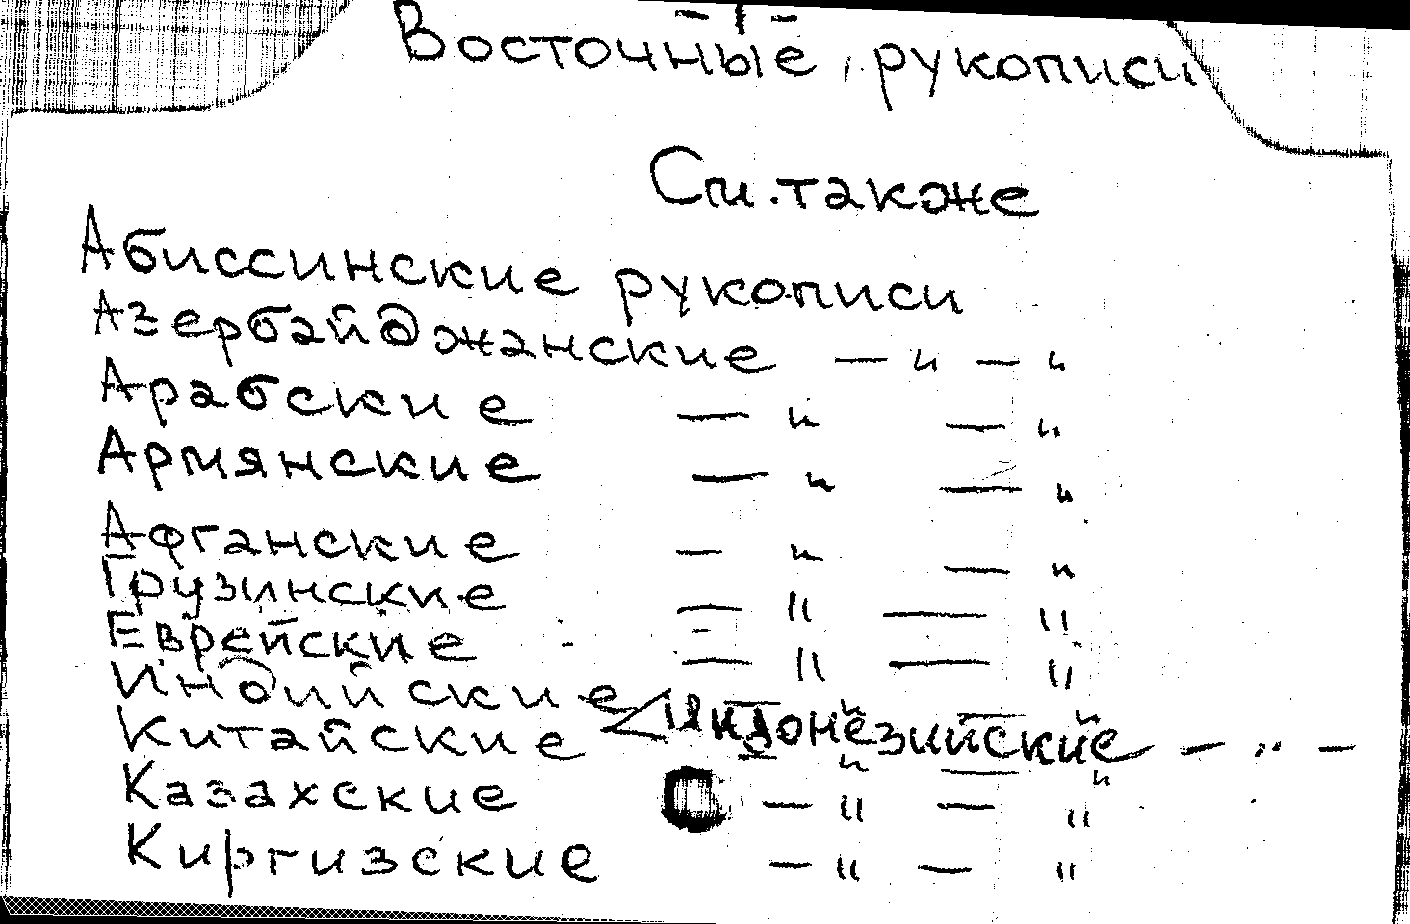 Восточные рукописи
См. также
Абиссинские рукописи
Азербайджанские — " — "
Арабские — " — "
Армянские — " — "
Афганские — " — "
Грузинские — " — "
Еврейские — " — "
Индийские — " — "
Индонезийские — " —
Китайские — " — "
Казахские — " — "
Киргизские — " — "